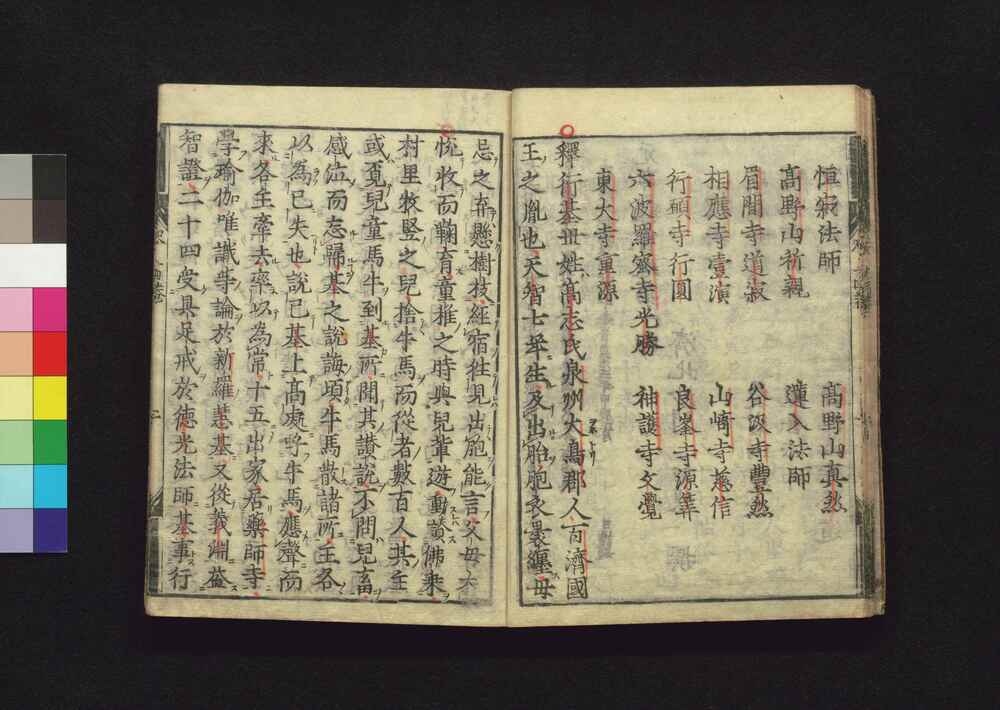 恒寂法師　高野山真然
高野山祈親　蓮入法師
眉間寺道寂　谷汲寺豐然
相應寺壹演　山崎寺慈信
行願寺行圓　良峯寺源筭
六波羅蜜寺光勝　神護寺文覺
東大寺重源
釋行基世姓高志氏泉州大鳥郡人百濟國
王之胤也天智七年生及出胎胞衣裹纒母
忌之弃懸樹枝經宿徃見出胞能言父母大
悅收而鞠育童稚之時與兒輩遊動賛佛乘
村里牧竪之兒捨牛馬而從者數百人其主
或覓兒童馬牛到基所聞其讃說不問兒畜
感泣而忘歸基之說誨頃牛馬散諸所主各
以為已失也說已基上高處呼牛馬應聲而
來各主牽去率以為常十五出家居藥師寺
學瑜伽唯識等論於新羅慧基又從義淵益
智證二十四受具足戒於德光法師基事行